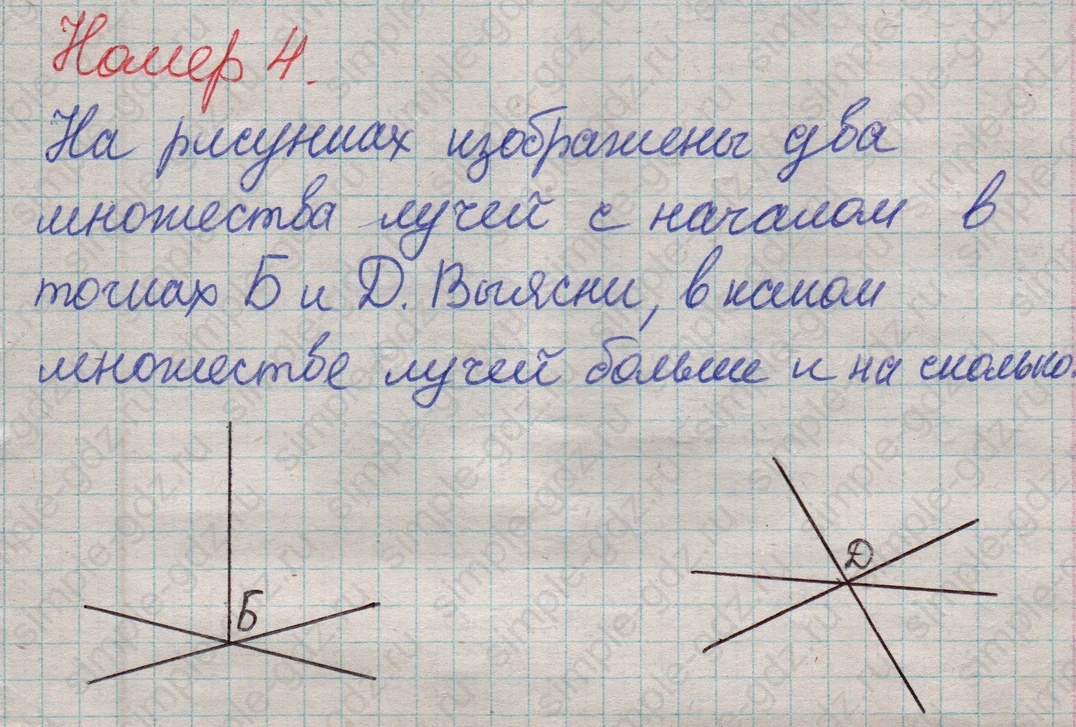 Номер 4.
На рисунках изображены два
множества лучей с началом в
точках Б и Д. Выясни, в каком
множестве лучей больше и на сколько.
Б
Д
simple-gdz.ru